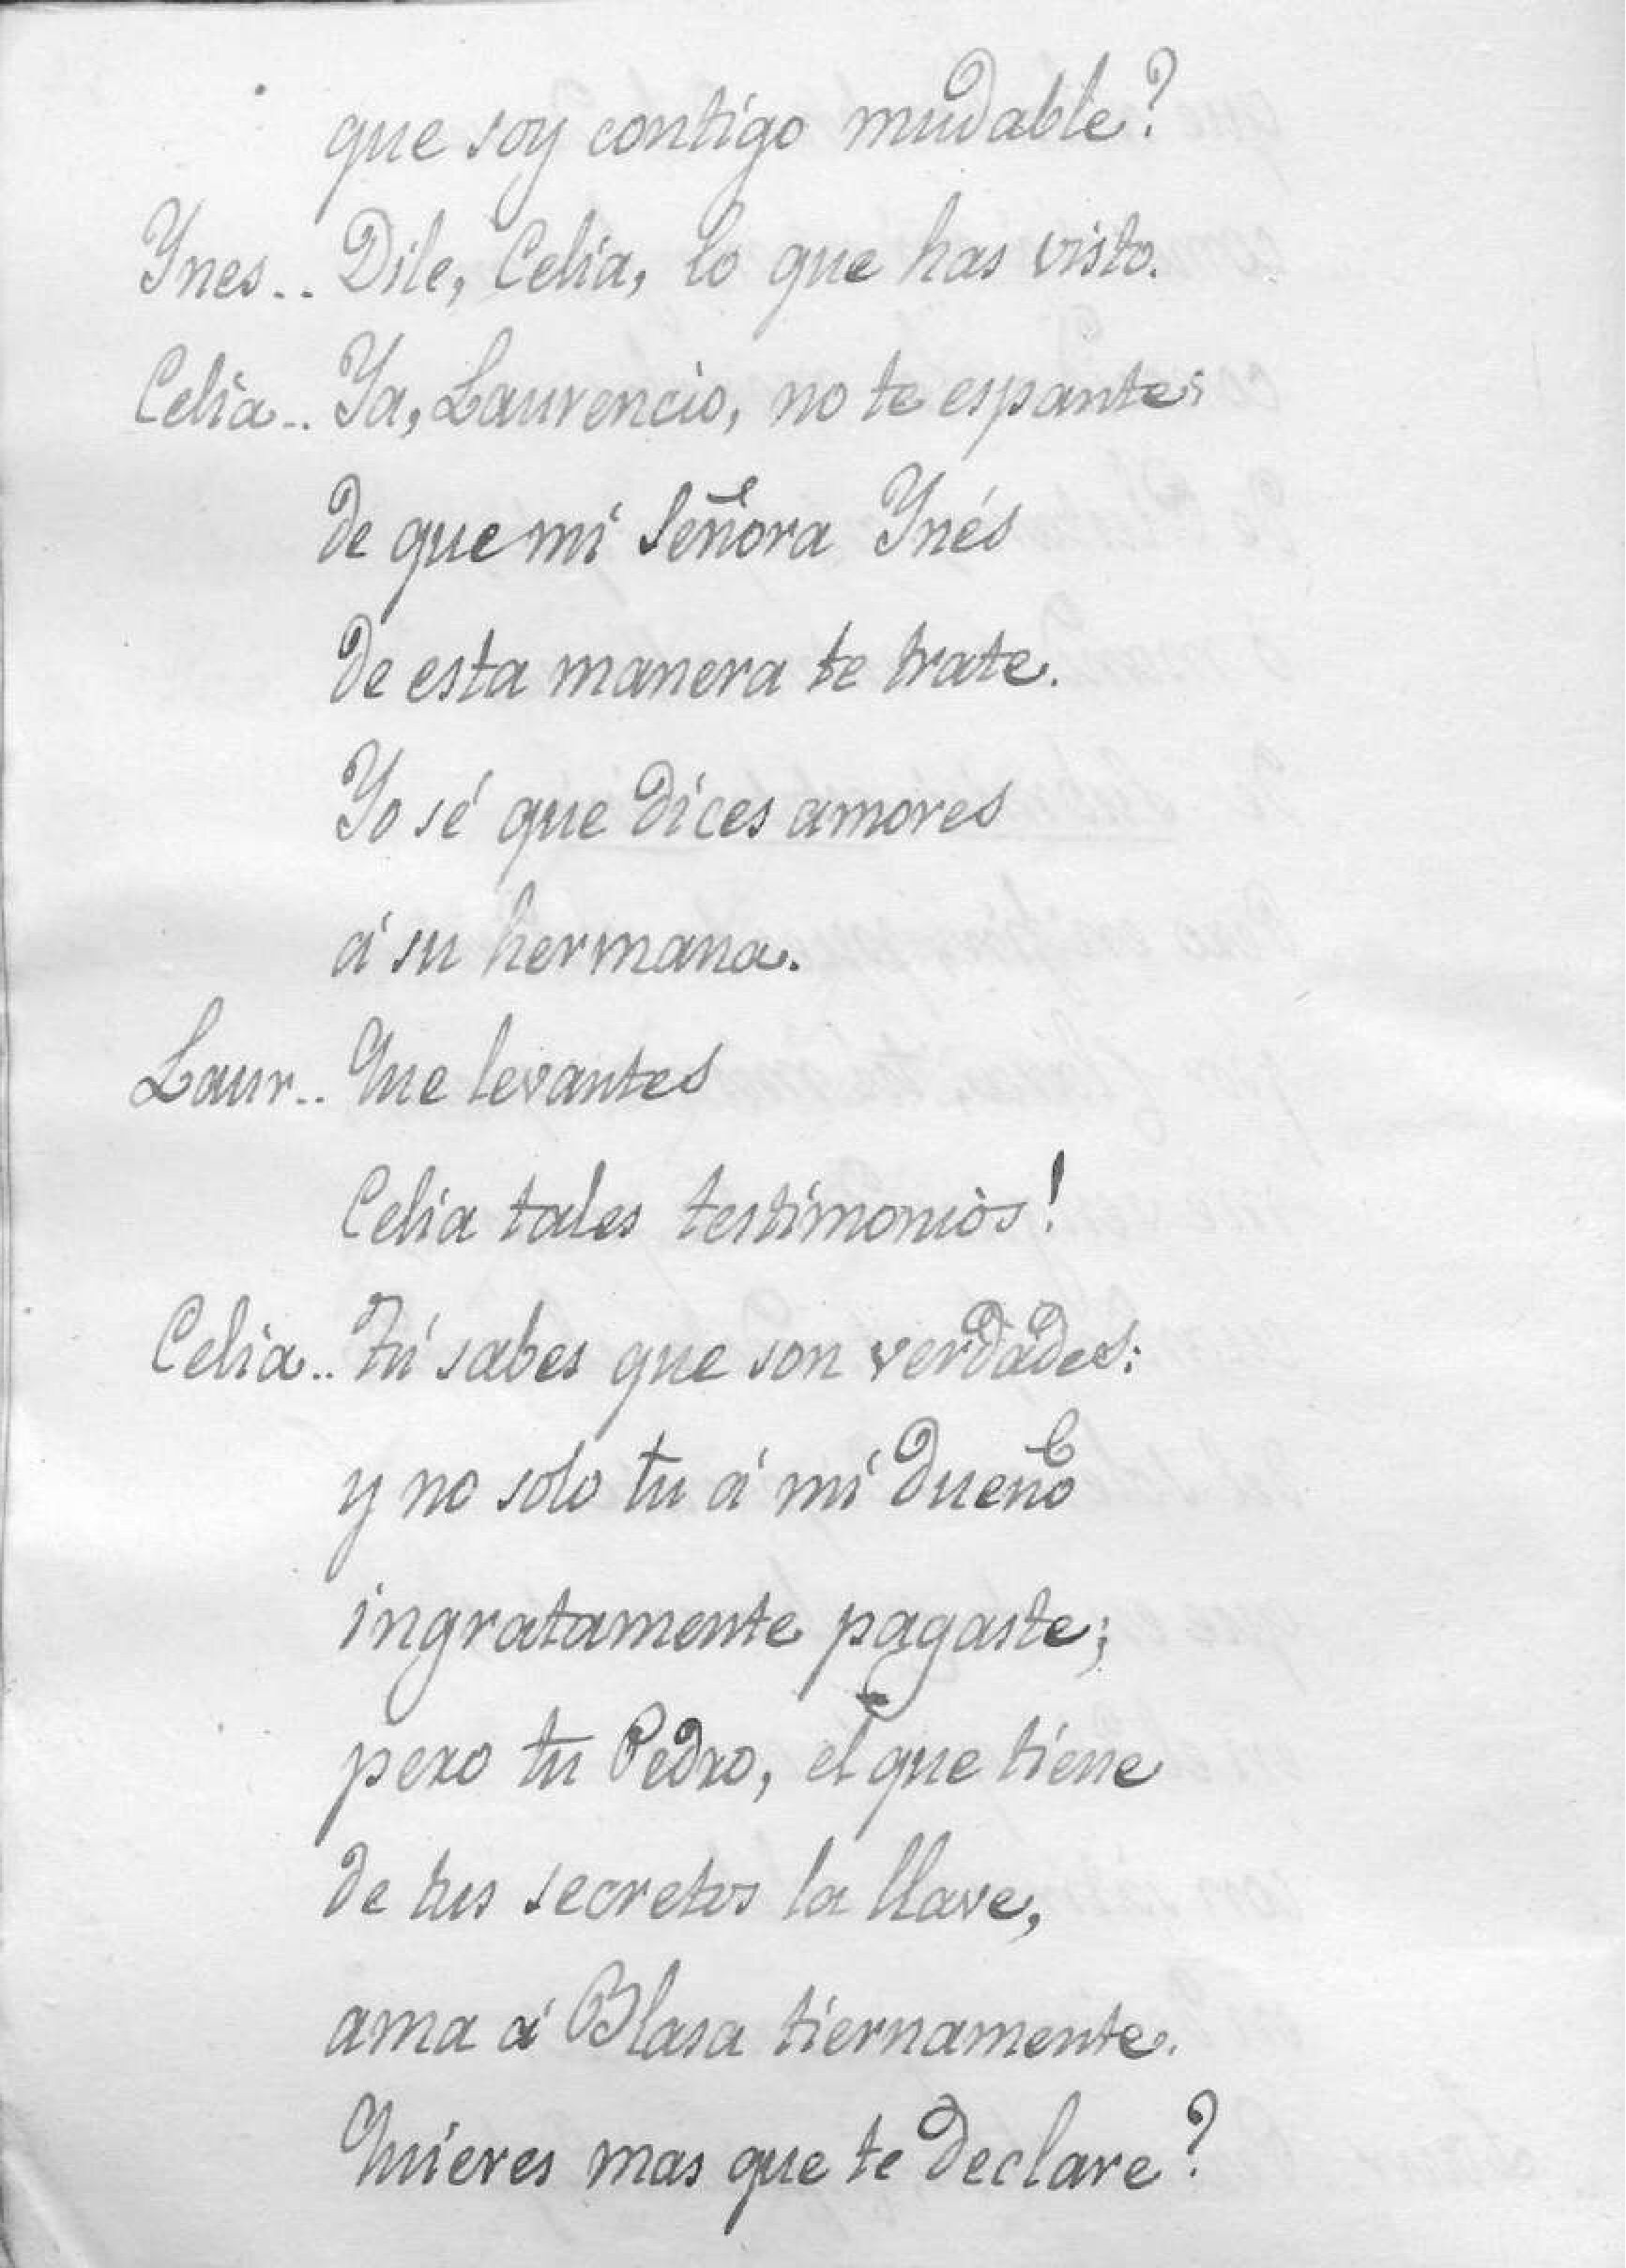 que soy contigo mudable?
Ynes.. Dile, Celia, lo que has visto.
Celia.. Ya, Laurencio, no te espantes
de que mi Señora Ynés
de esta manera te trate.
Yo sé que dices amores
á su hermana.
Laur.. Que levantes
Celia tales testimonios!
Celia.. Tú sabes que son verdades:
y no solo tu á mi dueño
ingratamente pagaste;
pero tu Pedro, el que tiene
de tus secretos la llave,
ama á Blasa tiernamente.
Quieres mas que te declare?